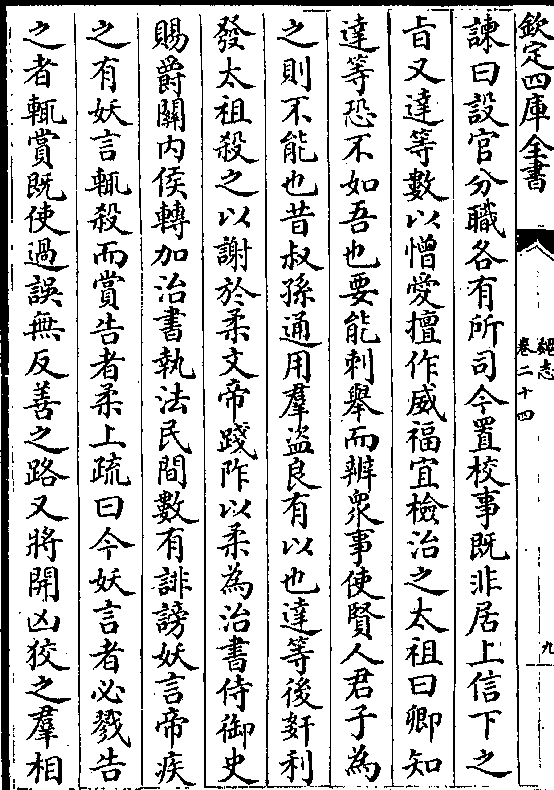 欽定四庫全書
魏志
卷二十四
九
諫曰設官分職各有所司今置校事既非居上信下之
㫖又達等數以憎愛擅作威福宜檢治之太祖曰卿知
達等恐不如吾也要能刺舉而辨衆事使賢人君子為
之則不能也昔叔孫通用羣盜良有以也達等後姧利
發太祖殺之以謝於柔文帝踐阼以柔為治書侍御史
賜爵關內侯轉加治書執法民間數有誹謗妖言帝疾
之有妖言輒殺而賞告者柔上疏曰今妖言者必戮告
之者輒賞既使過誤無反善之路又將開凶狡之羣相